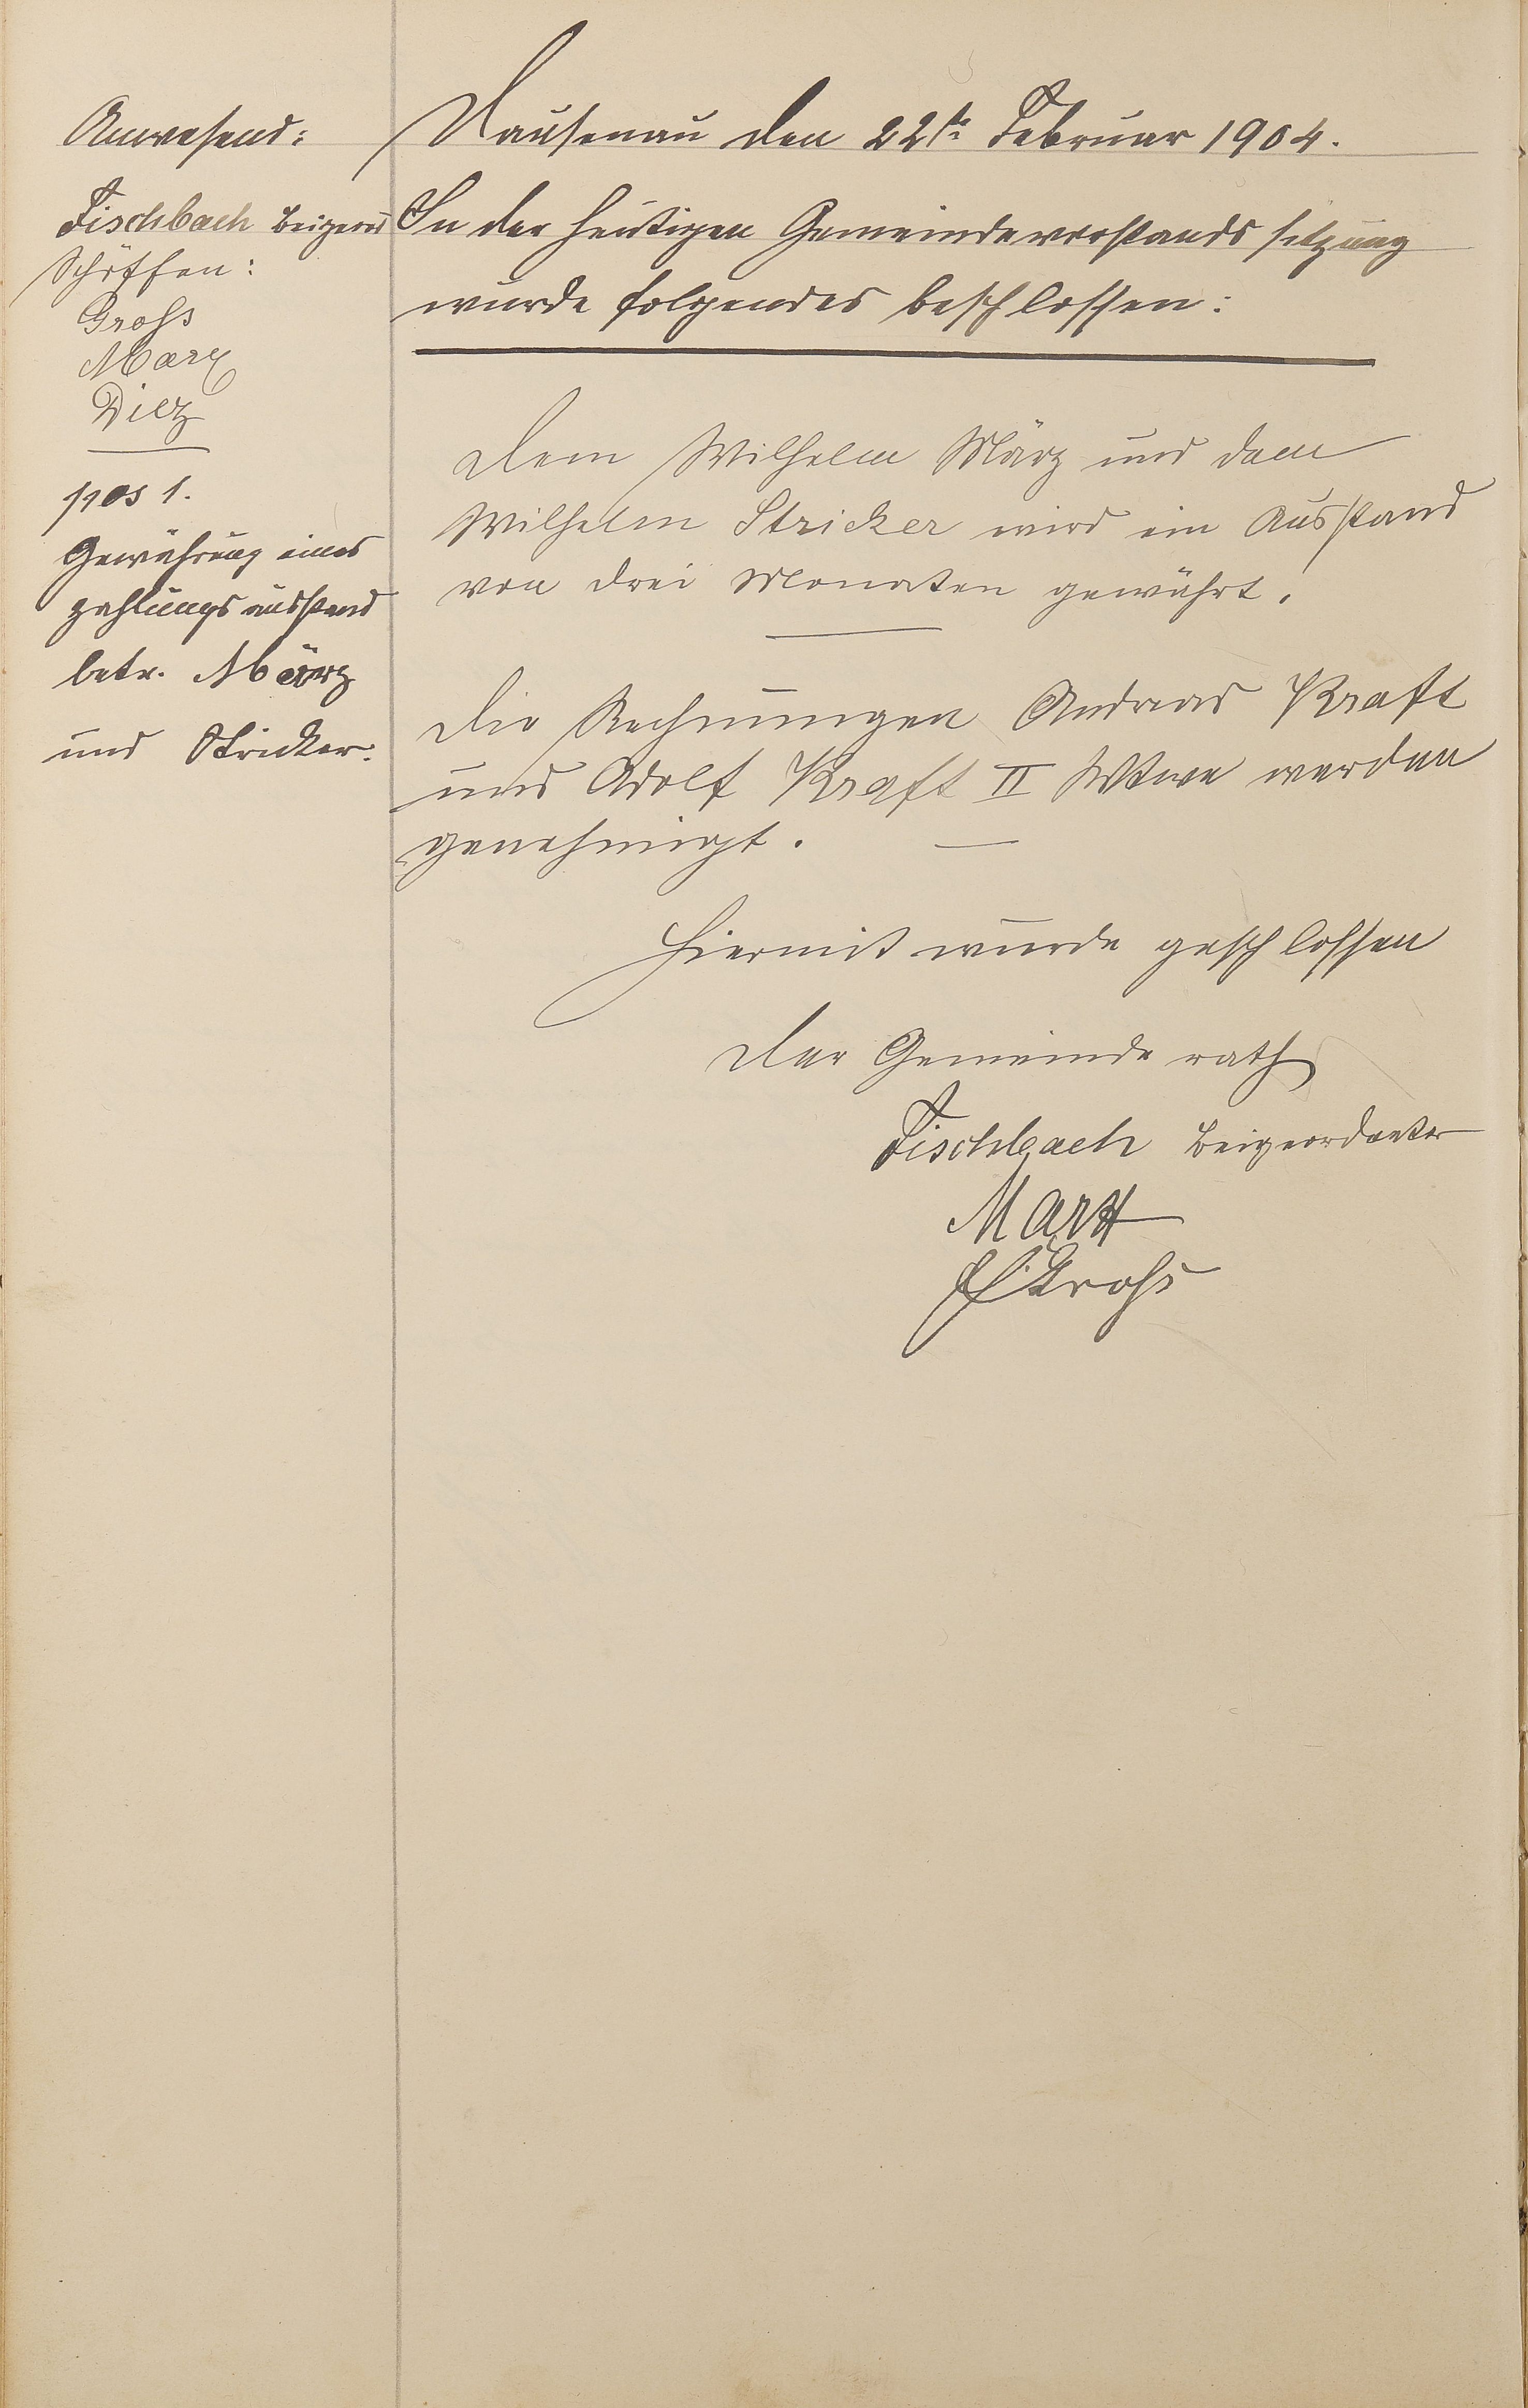 Anwesend:
Fischbach Beigeord
Schöffen:
Gross
Marx
Dietz
pos 1.
Gewährung eines
zahlungsausstand
betr. März
und Stricker.
Dausenau den 22te Februar 1904.
In der heutigen Gemeindevorstandssitzung
wurde folgendes beschlossen:
Dem Wilhelm März und dem
Wilhelm Stricker wird ein Ausstand
von drei Monaten gewährt.
Die Rechnungen Andreas Kraft
und Adolf Kraft II Wtwe werden
genehmigt.
Hiermit wurde geschlossen
Der Gemeinderath
Fischbach Beigeordneter
Marx
Gross